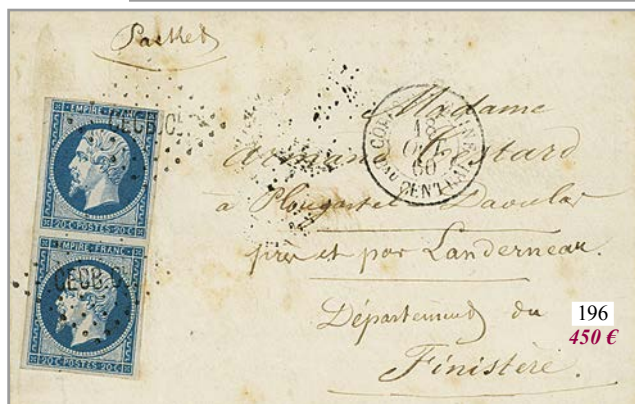 Packet
EMPIRE FRANC
20 C POSTES 20 C
EMPIRE FRANC
20 C POSTES 20 C
18
60
Bau CENTRAL
Madame
Armand
à Plougastel Daoulas
près et par Landerneau.
Département du
Finistère.
196
450 €